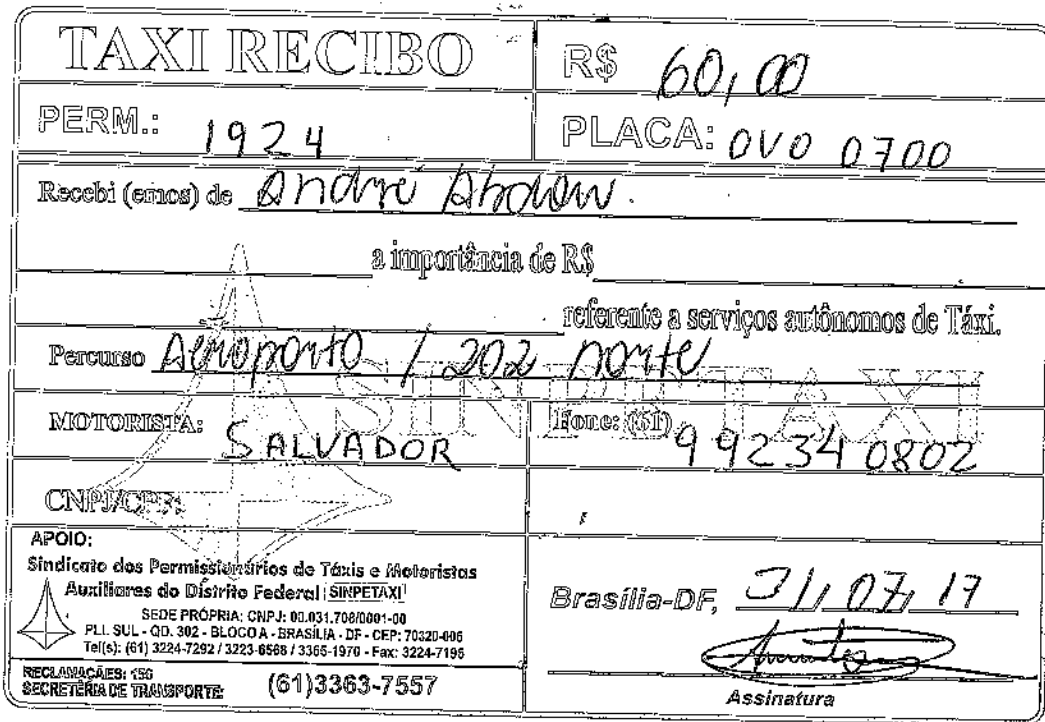 TAXI RECIBO
R$ 60,00
PERM.: 1924
PLACA: OVO 0700
Recebi (emos) de André
a importância de R$
referente a serviços autônomos de Táxi.
Percurso Aeroporto / 202 norte
SINPETAXI
MOTORISTA: SALVADOR
Fone: (61) 992340802
CNPJ/CPF:
APOIO:
Sindicato dos Permissionários de Táxis e Motoristas
Auxiliares do Distrito Federal SINPETAXI
SEDE PRÓPRIA: CNPJ: 00.031.708/0001-00
PLL SUL - QD. 302 - BLOCO A - BRASÍLIA - DF - CEP: 70320-005
Tel(s): (61) 3224-7292 / 3223-6568 / 3365-1970 - Fax: 3224-7195
RECLAMAÇÃES: 156
SECRETÉRIA DE TRANSPORTE: (61)3363-7557
Brasília-DF, 31/07/17
Assinatura